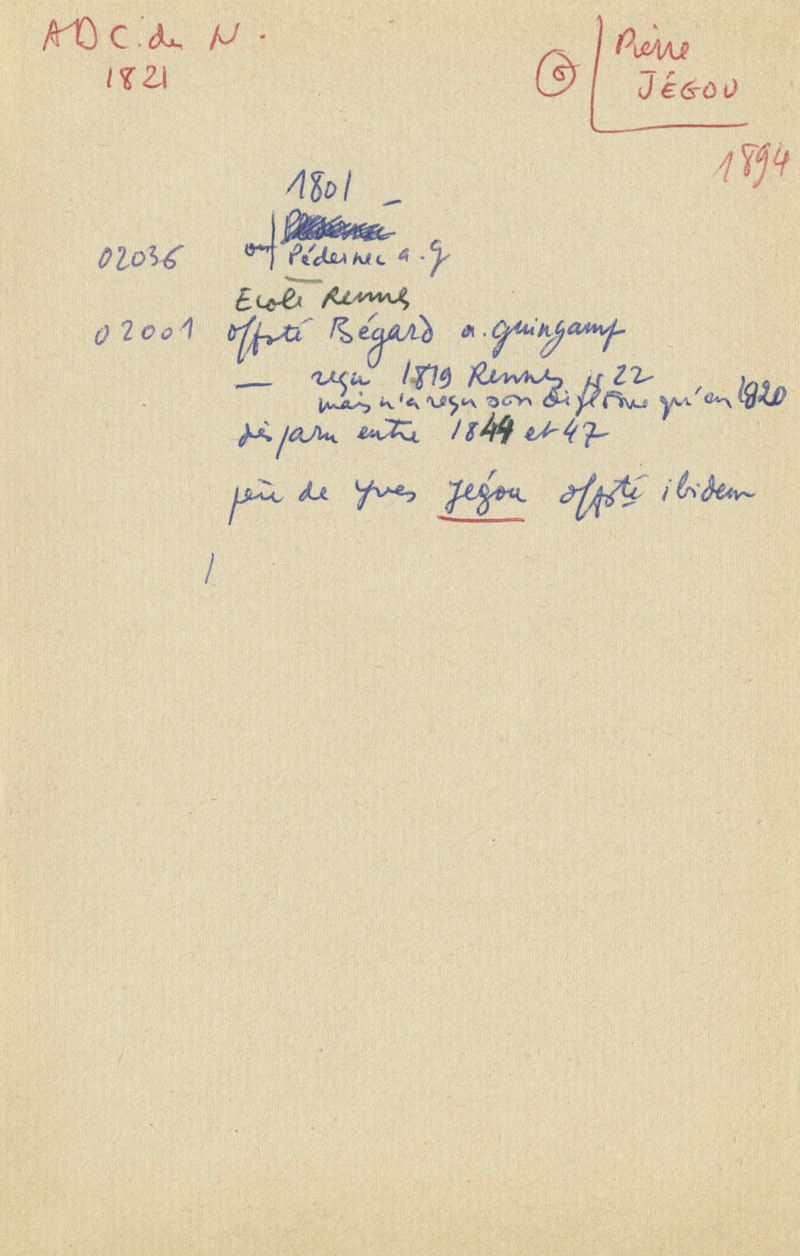 ADC. du N.
1821
G
Pierre
JÉGOU
1894
1801 -
02036 ou Pédernec a. g
Ecole Rennes
02001 offsté Bégard a. guingamp
— reçu 1819 Rennes 22
mais n'a reçu son diplôme qu'en 1820
disparu entre 1844 et 47
père de Yves Jégou offsté ibidem